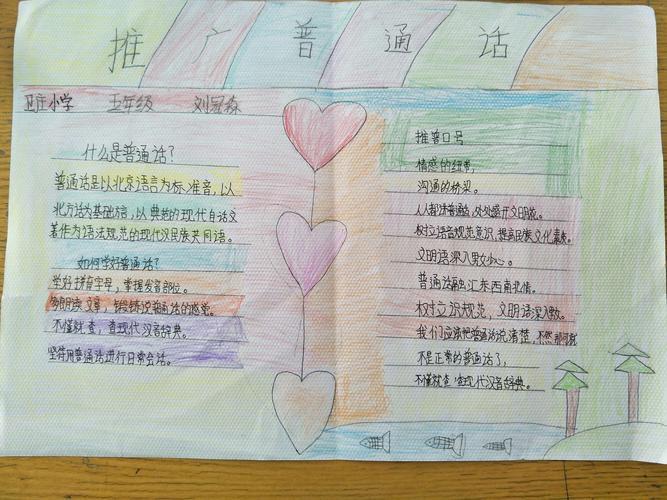 推广普通话
卫庄小学 五年级 刘冠森
什么是普通话?
普通话是以北京语言为标准音,以
北方话为基础方言,以典范的现代白话文
著作为语法规范的现代汉民族共同语。
如何学好普通话?
学好拼音字母,掌握发音部位。
多朗读文章,锻练说普通话的感觉。
不懂就查,查现代汉音辞典。
坚持用普通话进行日常会话。
推普口号
情感的纽带,
沟通的桥梁。
人人都讲普通话,处处盛开文明花。
树立语言规范意识,提高民族文化素养。
文明语深入男女心。
普通话融汇东西南北情。
树立识规范,文明语深入
我们应该把普通话说清楚,不然那可就
不是正常的普通话了,
不懂就查 查现代汉音辞典。